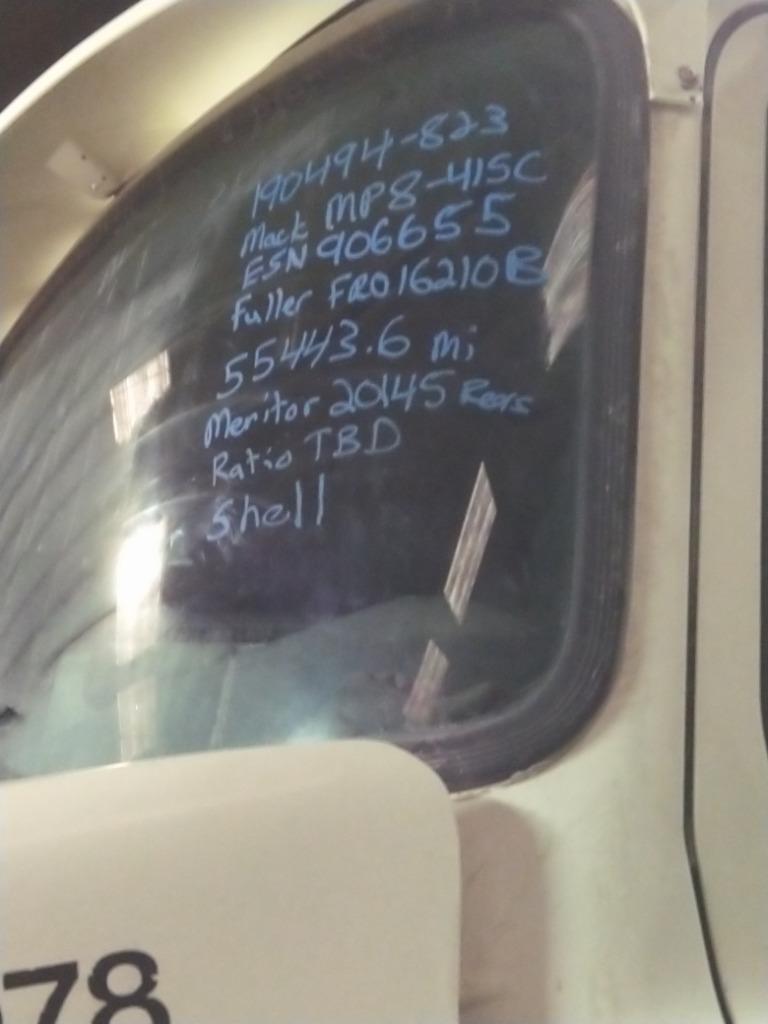 190494-823
Mack MP8-415C
ESN 906655
Fuller FRO16210B
55443.6 mi
Meritor 20145 Rears
Ratio TBD
Shell
78